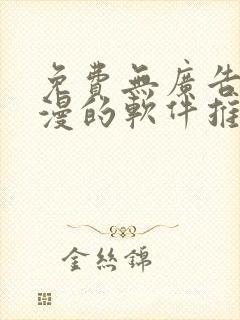 免費無廣告
漫的軟件推
金絲錦